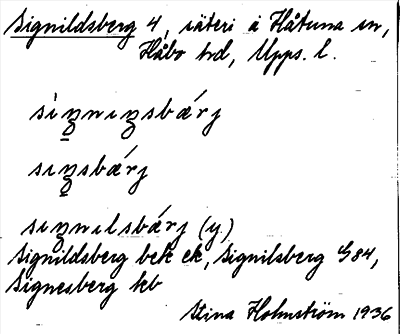 Signildsberg 4, säteri å Håtuna sn,
Håbo hd, Upps. l.
sìŋnıŋsbárj
sıŋsbárj
sıŋnılsbárj (y.)
Signildsberg bet ek, Signilsberg G84,
Signesberg kb
Stina Holmström 1936